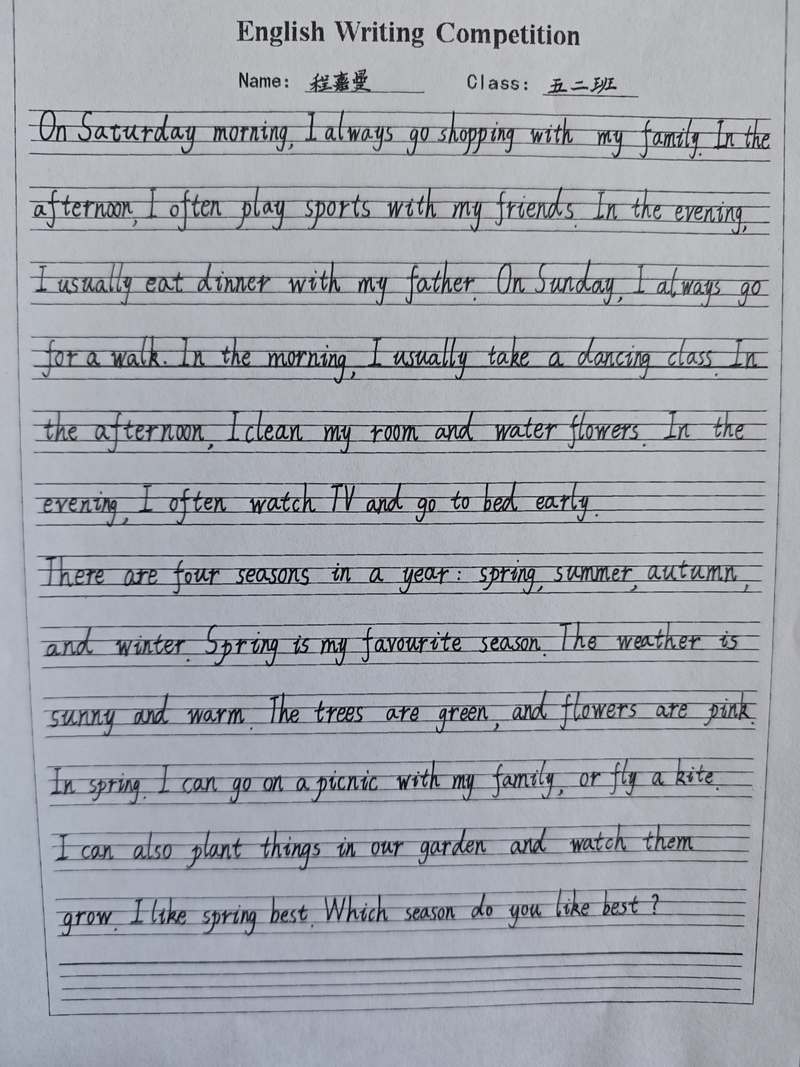 English Writing Competition
Name: 程嘉曼 Class: 五二班
On Saturday morning, I always go shopping with my family. In the
afternoon, I often play sports with my friends. In the evening,
I usually eat dinner with my father. On Sunday, I always go
for a walk. In the morning, I usually take a dancing class. In
the afternoon, I clean my room and water flowers. In the
evening, I often watch TV and go to bed early.
There are four seasons in a year: spring, summer, autumn,
and winter. Spring is my favourite season. The weather is
sunny and warm. The trees are green, and flowers are pink.
In spring. I can go on a picnic with my family, or fly a kite.
I can also plant things in our garden and watch them
grow. I like spring best. Which season do you like best?